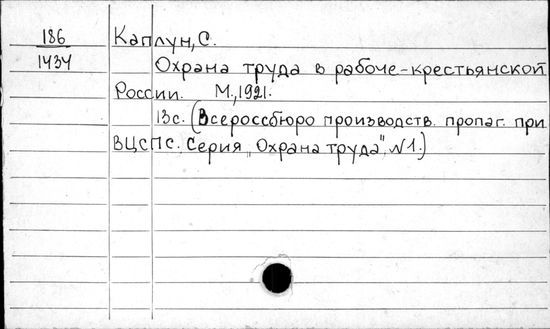 186
1434
Каплун, С.
Охрана труда в рабоче-крестьянской
России. М., 1921.
13с. (Всероссбюро производств. пропаг. при
ВЦСПС. Серия „Охрана труда", №1.)